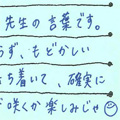 先生の言葉です。
らず、もどかしい
ち着いて、確実に
咲くか楽しみじゃ